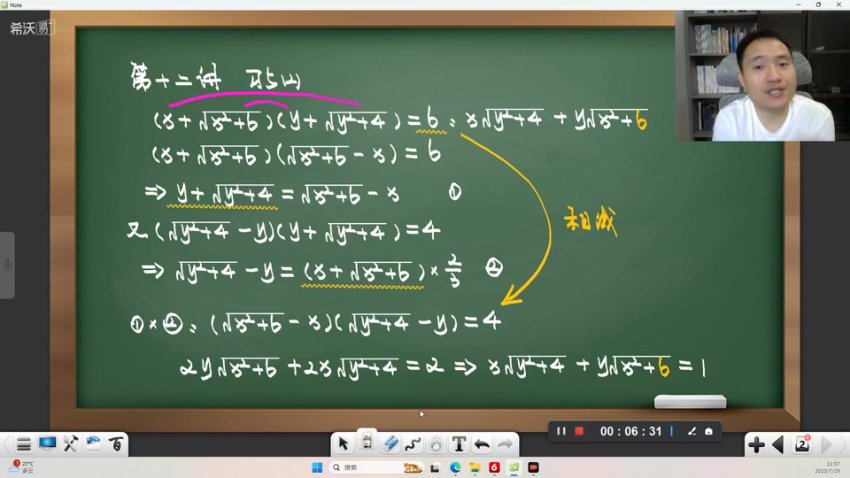 Note
希沃易+
第十二讲 巧算(2)
(x+√x²+6)(y+√y²+4)=6, x√y²+4 + y√x²+6
(x+√x²+6)(√x²+6-x)=6
⇒ y+√y²+4=√x²+6-x ①
相减
又(√y²+4-y)(y+√y²+4)=4
⇒ √y²+4-y=(x+√x²+6)×2/3 ②
①×②: (√x²+6-x)(√y²+4-y)=4
2y√x²+6+2x√y²+4=2⇒x√y²+4+y√x²+6=1
00:06:31
百
T
2
27°C
多云
搜索
11:57
2025/7/29